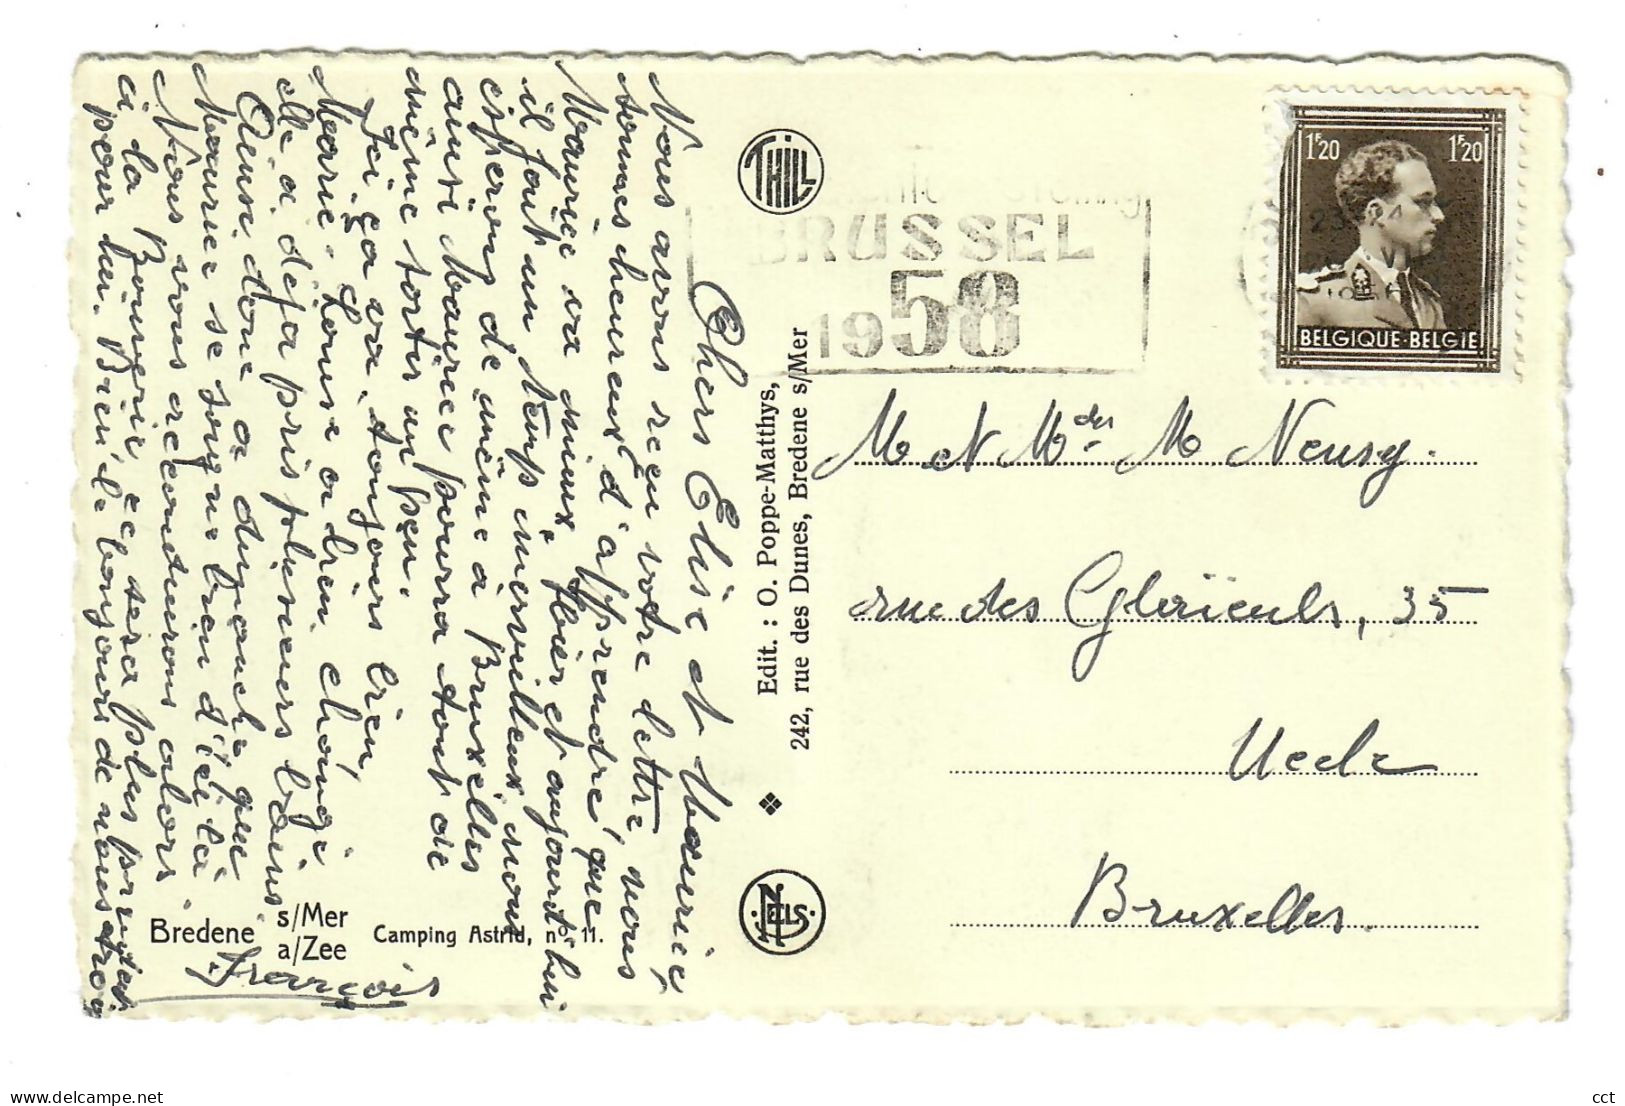 Chers Elise et Maurice,
Nous avons reçu votre lettre nous
sommes heureux d'apprendre que
Maurice va mieux, hier et aujourd'hui
il fait un temps merveilleux, nous
espérons de même à Bruxelles
ainsi Maurice pourra tout de
même sortir un peu.
Ici ça va toujours bien,
Marie-Louise a bien changé
elle a déjà pris plusieurs bains
Ainsi donc à dimanche que
Maurice se soigne bien d'ici là
Nous vous reconduirons alors
à la Bouverie ce sera plus prudent
pour lui. Bien le bonjour de nous trois
François
Bredene s/Mer
a/Zee
Camping Astrid, 11.
THILL
NELS
Edit. : O. Poppe-Matthys,
242, rue des Dunes, Bredene s/Mer
BRUSSEL
1958
1F20 1F20
BELGIQUE·BELGIE
M et Mde M Neusy.
rue des Glaïeuls, 35
Uccle
Bruxelles.
cct